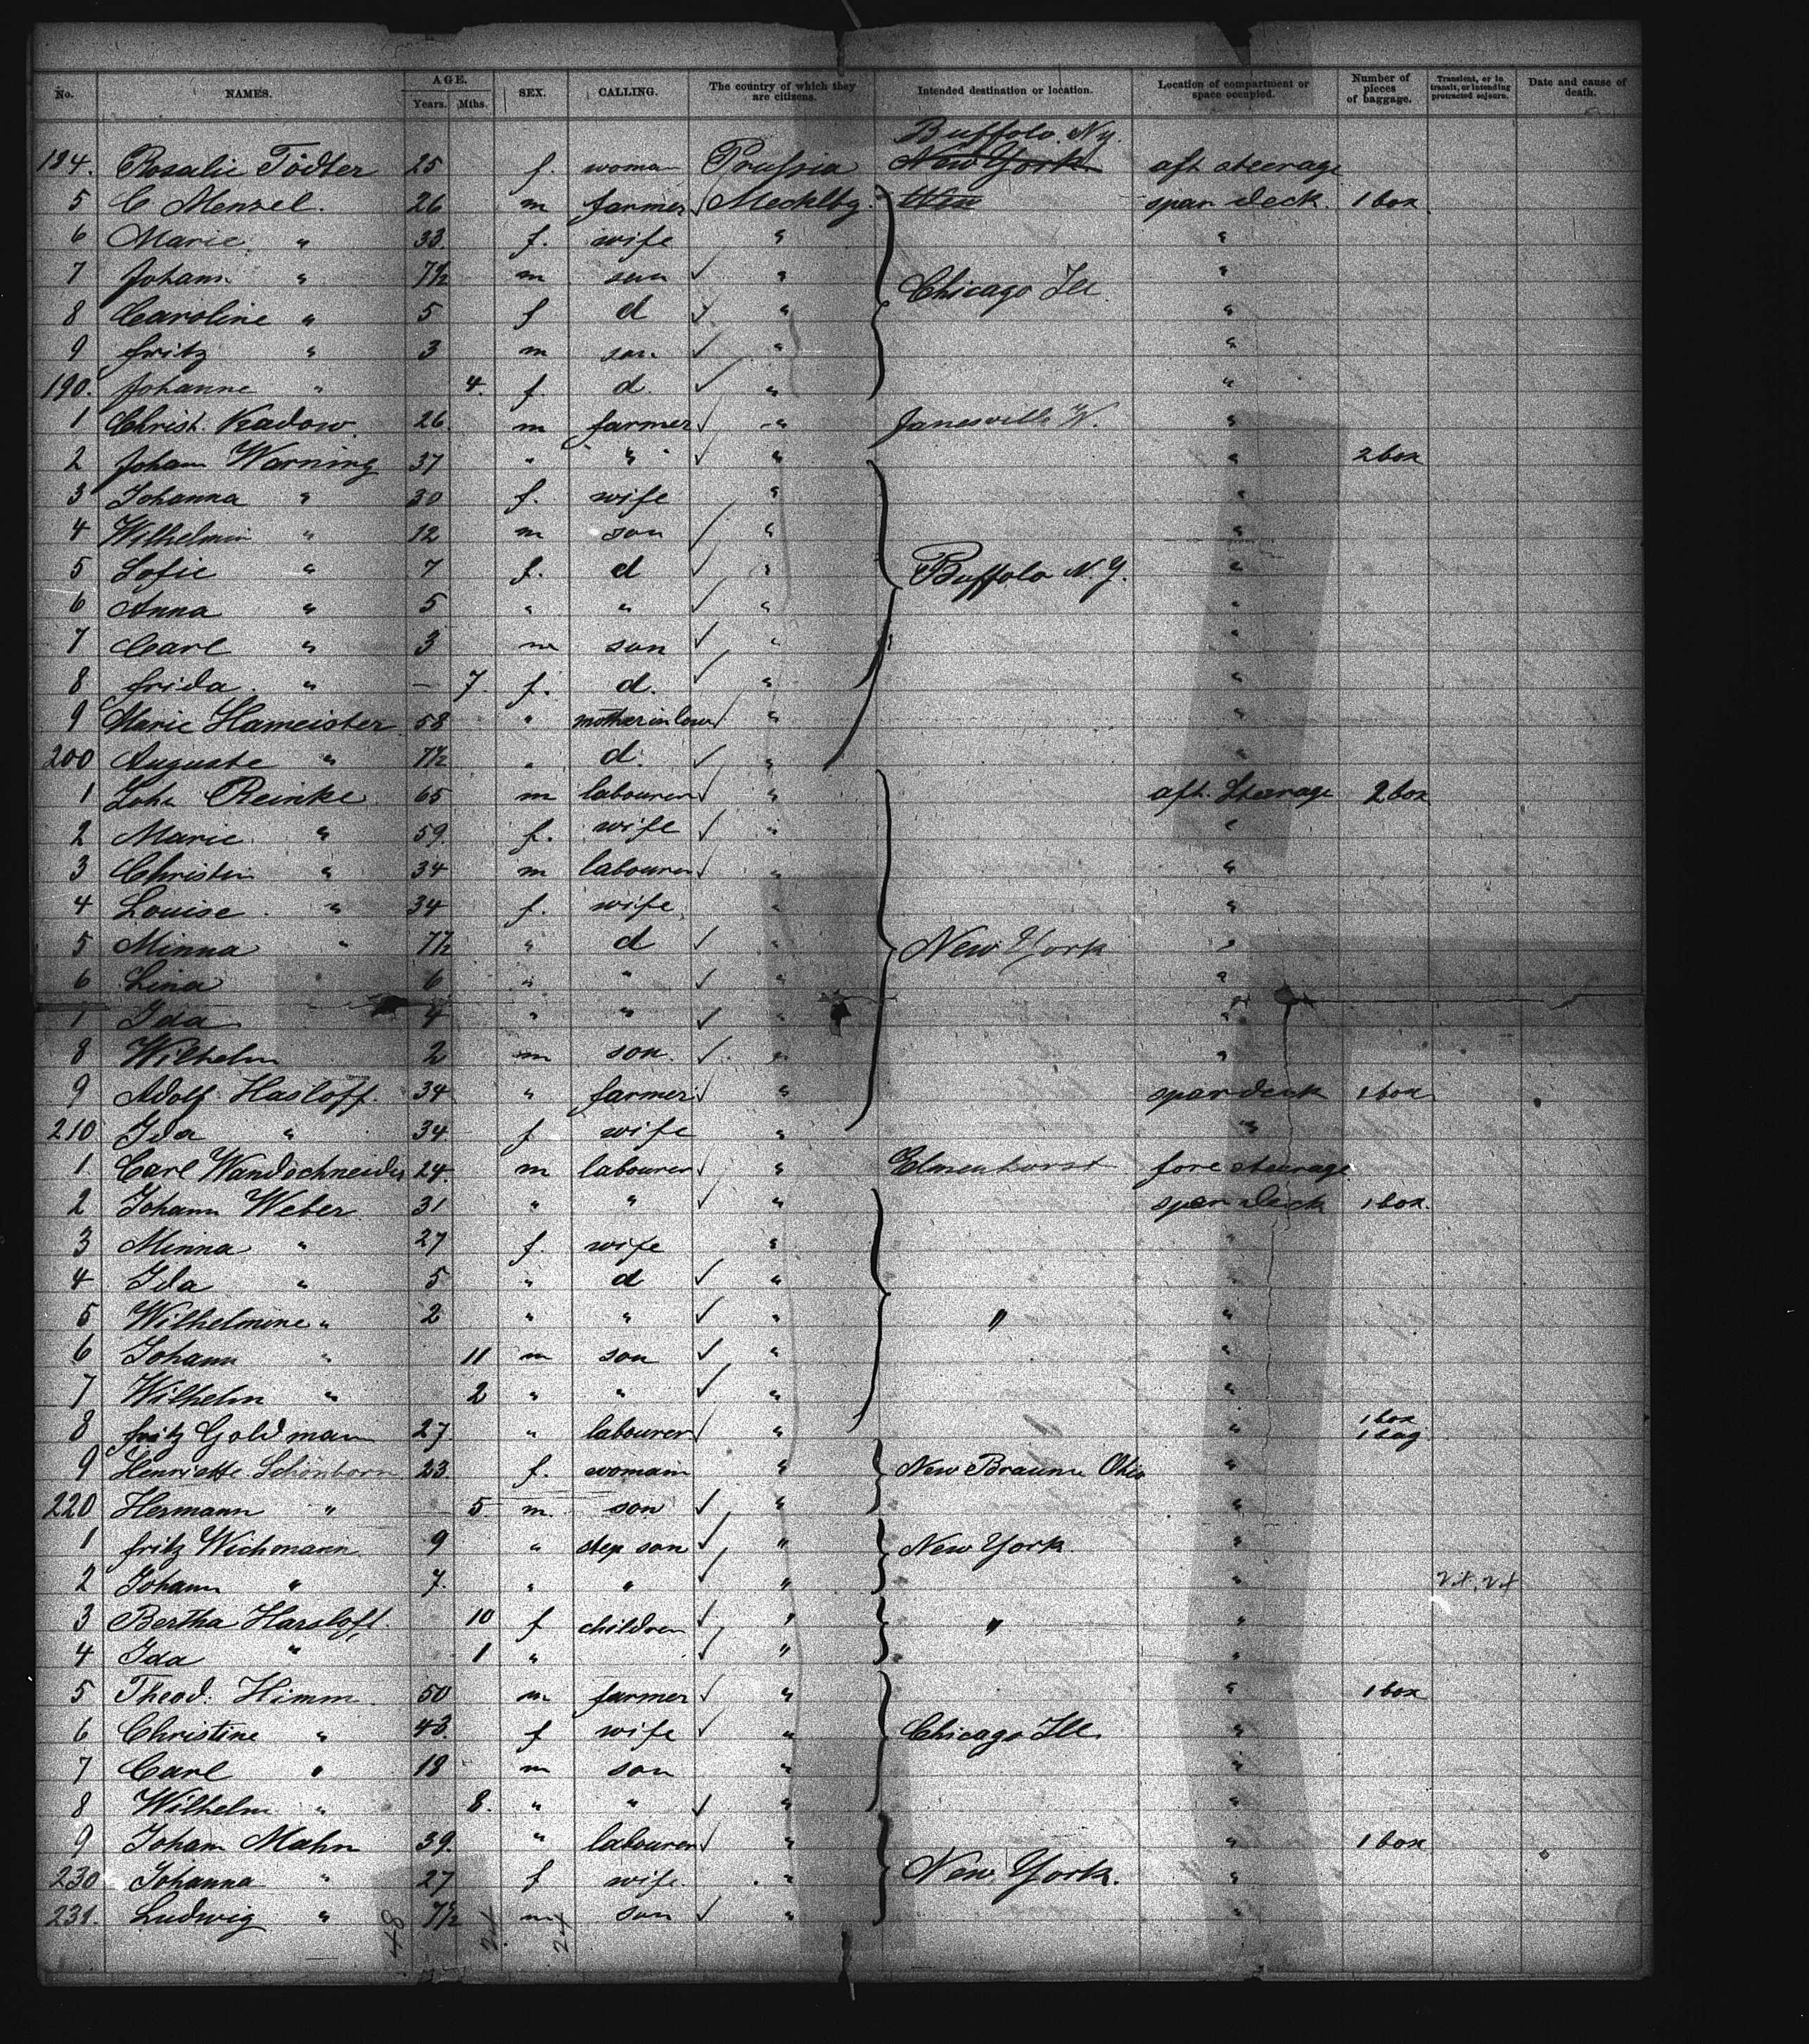 No. NAMES. AGE. Years. Mths. SEX. CALLING. The country of which they are citizens. Intended destination or location. Location of compartment or space occupied. Number of pieces of baggage. Transient, or in transit, or intending protracted sojourn. Date and cause of death.
Buffolo. Ny.
184. Rosalie Tödter 25 f. woman Prussia New York aft steerage
5 C Mensel. 26 m farmer Mecklbg. spar deck 1 box
6 Marie " 33. f. wife " "
7 Johann " 7½ m son " Chicago Ill. "
8 Caroline " 5 f d " "
9 Fritz " 3 m son " "
190. Johanne " 4. f. d. " "
1 Christ. Kadow 26 m farmer " Janesville W. "
2 Joham Warning 37 " " " " 2 box
3 Johanna " 30 f. wife " "
4 Wilhelmin " 12 m son " "
5 Sofie " 7 f. d " Buffolo N.Y. "
6 Anna " 5 " " " "
7 Carl " 3 m son " "
8 Frida. " – 7. f. d. " "
9 Marie Hameister 58 " mother in law " "
200 Auguste " 7½ " d. " "
1 Joh. Reinke 65 m labourer " aft. Steerage 2 box
2 Marie " 59. f. wife " "
3 Christin " 34 m labourer " "
4 Louise " 34 f. wife " "
5 Minna " 7½ " d " New York "
6 Lina 6 " " " "
7 Ida 4 " " " "
8 Wilhelm 2 m son " "
9 Adolf Hasloff 34 " farmer " spar deck 1 box
210 Ida " 34 f wife " "
1 Carl Wandschneider 24. m labourer " Elmenhorst fore steerage
2 Johann Weber 31 " " " spar deck 1 box.
3 Minna " 27 f. wife " "
4 Ida " 5 " d " "
5 Wilhelmine " 2 " " " " "
6 Johann " 11 m son " "
7 Wilhelm " 2 " " " "
8 Fritz Goldmann 27. " labourer " " 1 box 1 bag
9 Henriette Schönborn 23 f. womain " New Braunn Ohio "
220 Hermann " 5 m. son " "
1 Fritz Wichmann 9 " step son " New York "
2 Johann " 7. " " " "
3 Bertha Harsloff. 10 f children " " "
4 Ida " 1 " " "
5 Theod. Himm 50 m farmer " " 1 box
6 Christine " 43. f wife " Chicago Ill. "
7 Carl " 18 m son " "
8 Wilhelm " 8. " " " "
9 Joham Mahn 39. " labourer " " 1 box
230 Johanna " 27 f wife " New York. "
231. Ludwig " 7½ m son " "
48 24 24